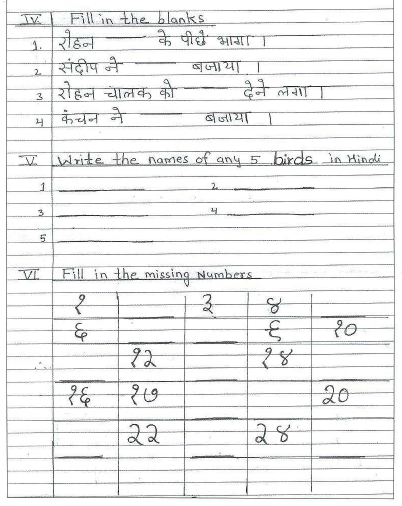 IV. Fill in the blanks
1. रोहन ____ के पीछे भागा ।
2 संदीप ने ____ बजाया ।
3 रोहन चालक को ____ देने लगा ।
4 कंचन ने ____ बजाया ।
V. Write the names of any 5 birds in Hindi
1 ____ 2. ____
3 ____ 4 ____
5 ____
VI. Fill in the missing Numbers
१ ____ ३ ४ ____
६ ____ ____ ९ १०
____ १२ ____ १४ ____
१६ १७ ____ ____ २०
____ २२ ____ २४ ____